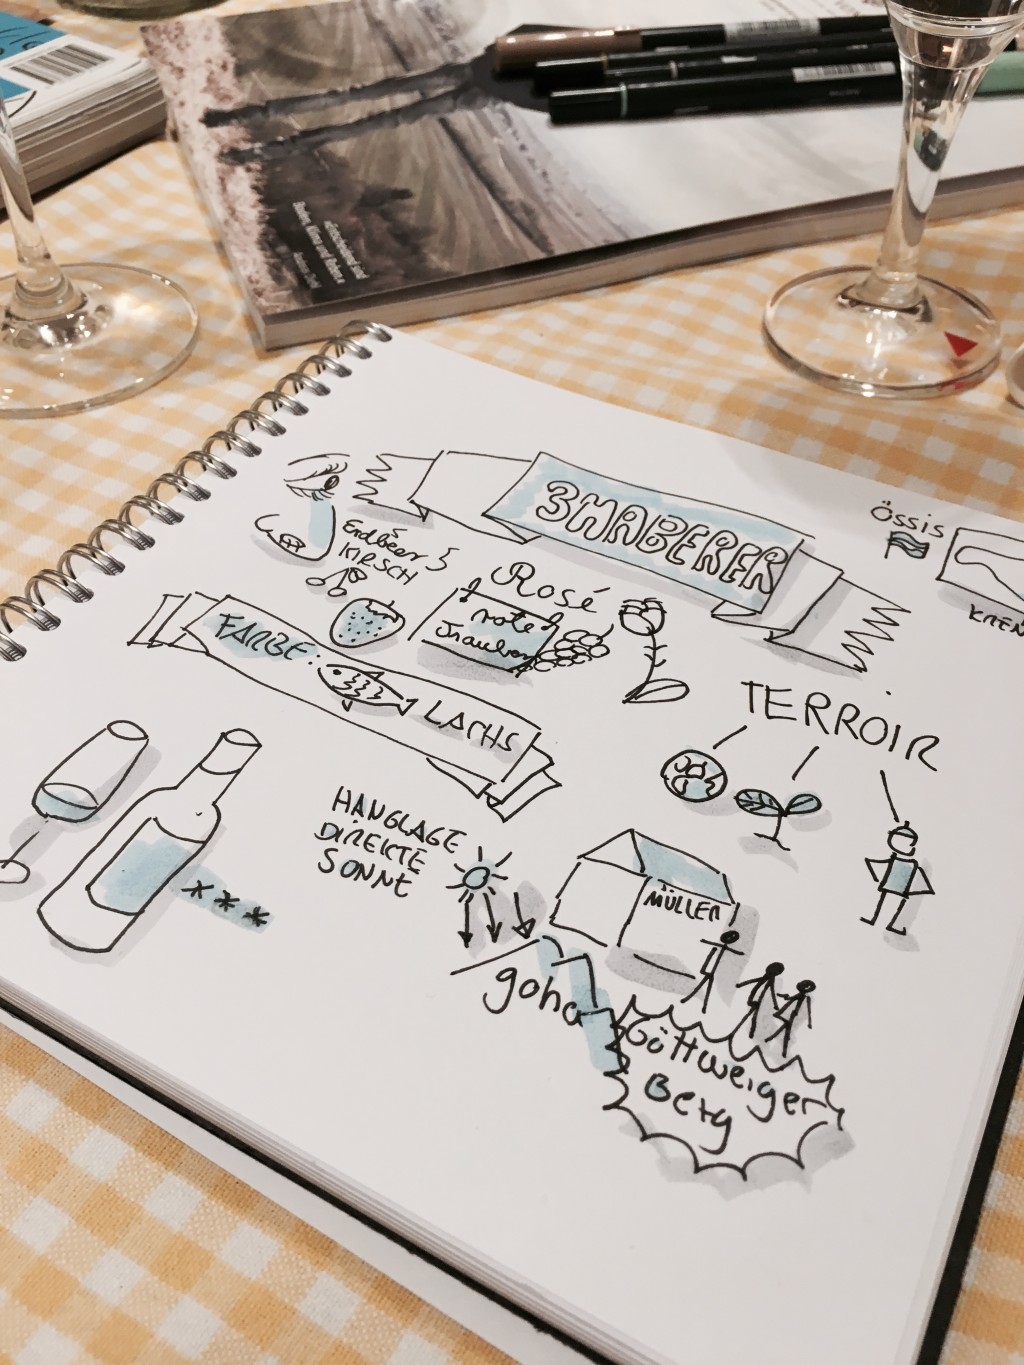 3HABERER
ÖSSIS
KREM
Erdbeer
KIRSCH
Rosé
rote
Trauben
FARBE:
LACHS
TERROIR
HANGLAGE
DIREKTE
SONNE
***
MÜLLER
goha
Göttweiger
Berg